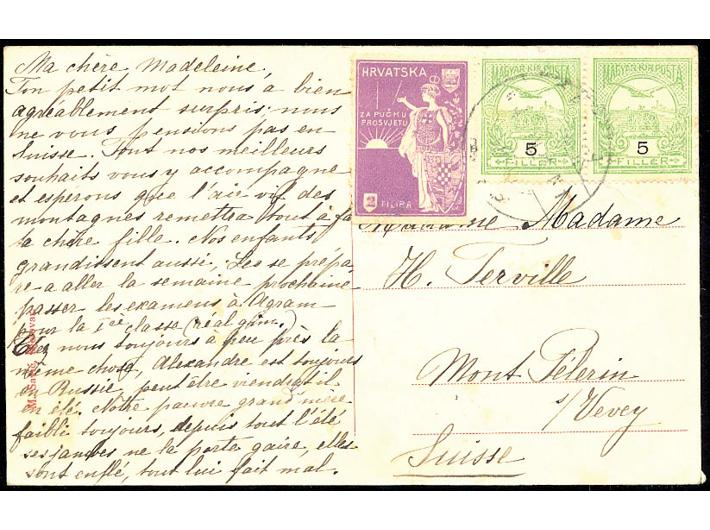 Ma chère Madeleine,
Ton petit mot nous a bien
agréablement surpris; nous
ne vous pensions pas en
Suisse. Tout nos meilleurs
souhaits vous y accompagne
et espérons que l'air vif des
montagnes remettra tout à fait
ta chère fille. Nos enfants
grandissent aussi, Léo se prépa-
re à aller la semaine prochaine
passer les examens à Agram
pour la classe (real gim.)
Chez nous toujours à peu près la
même chose, Alexandre est toujours
en Russie, peut être viendra-t-il
en été. Notre pauvre grand mère
faibli toujours, depuis tout l'été
ses jambes ne la porte gaire, elles
sont enflé, tout lui fait mal.
HRVATSKA
ZA PUČKU
PROSVJETU
2
FILIRA
MAGYAR KIR. POSTA
5
FILLER
MAGYAR KIR. POSTA
5
FILLER
Madame Madame
H. Terville
Mont Pélerin
s/Vevey
Suisse